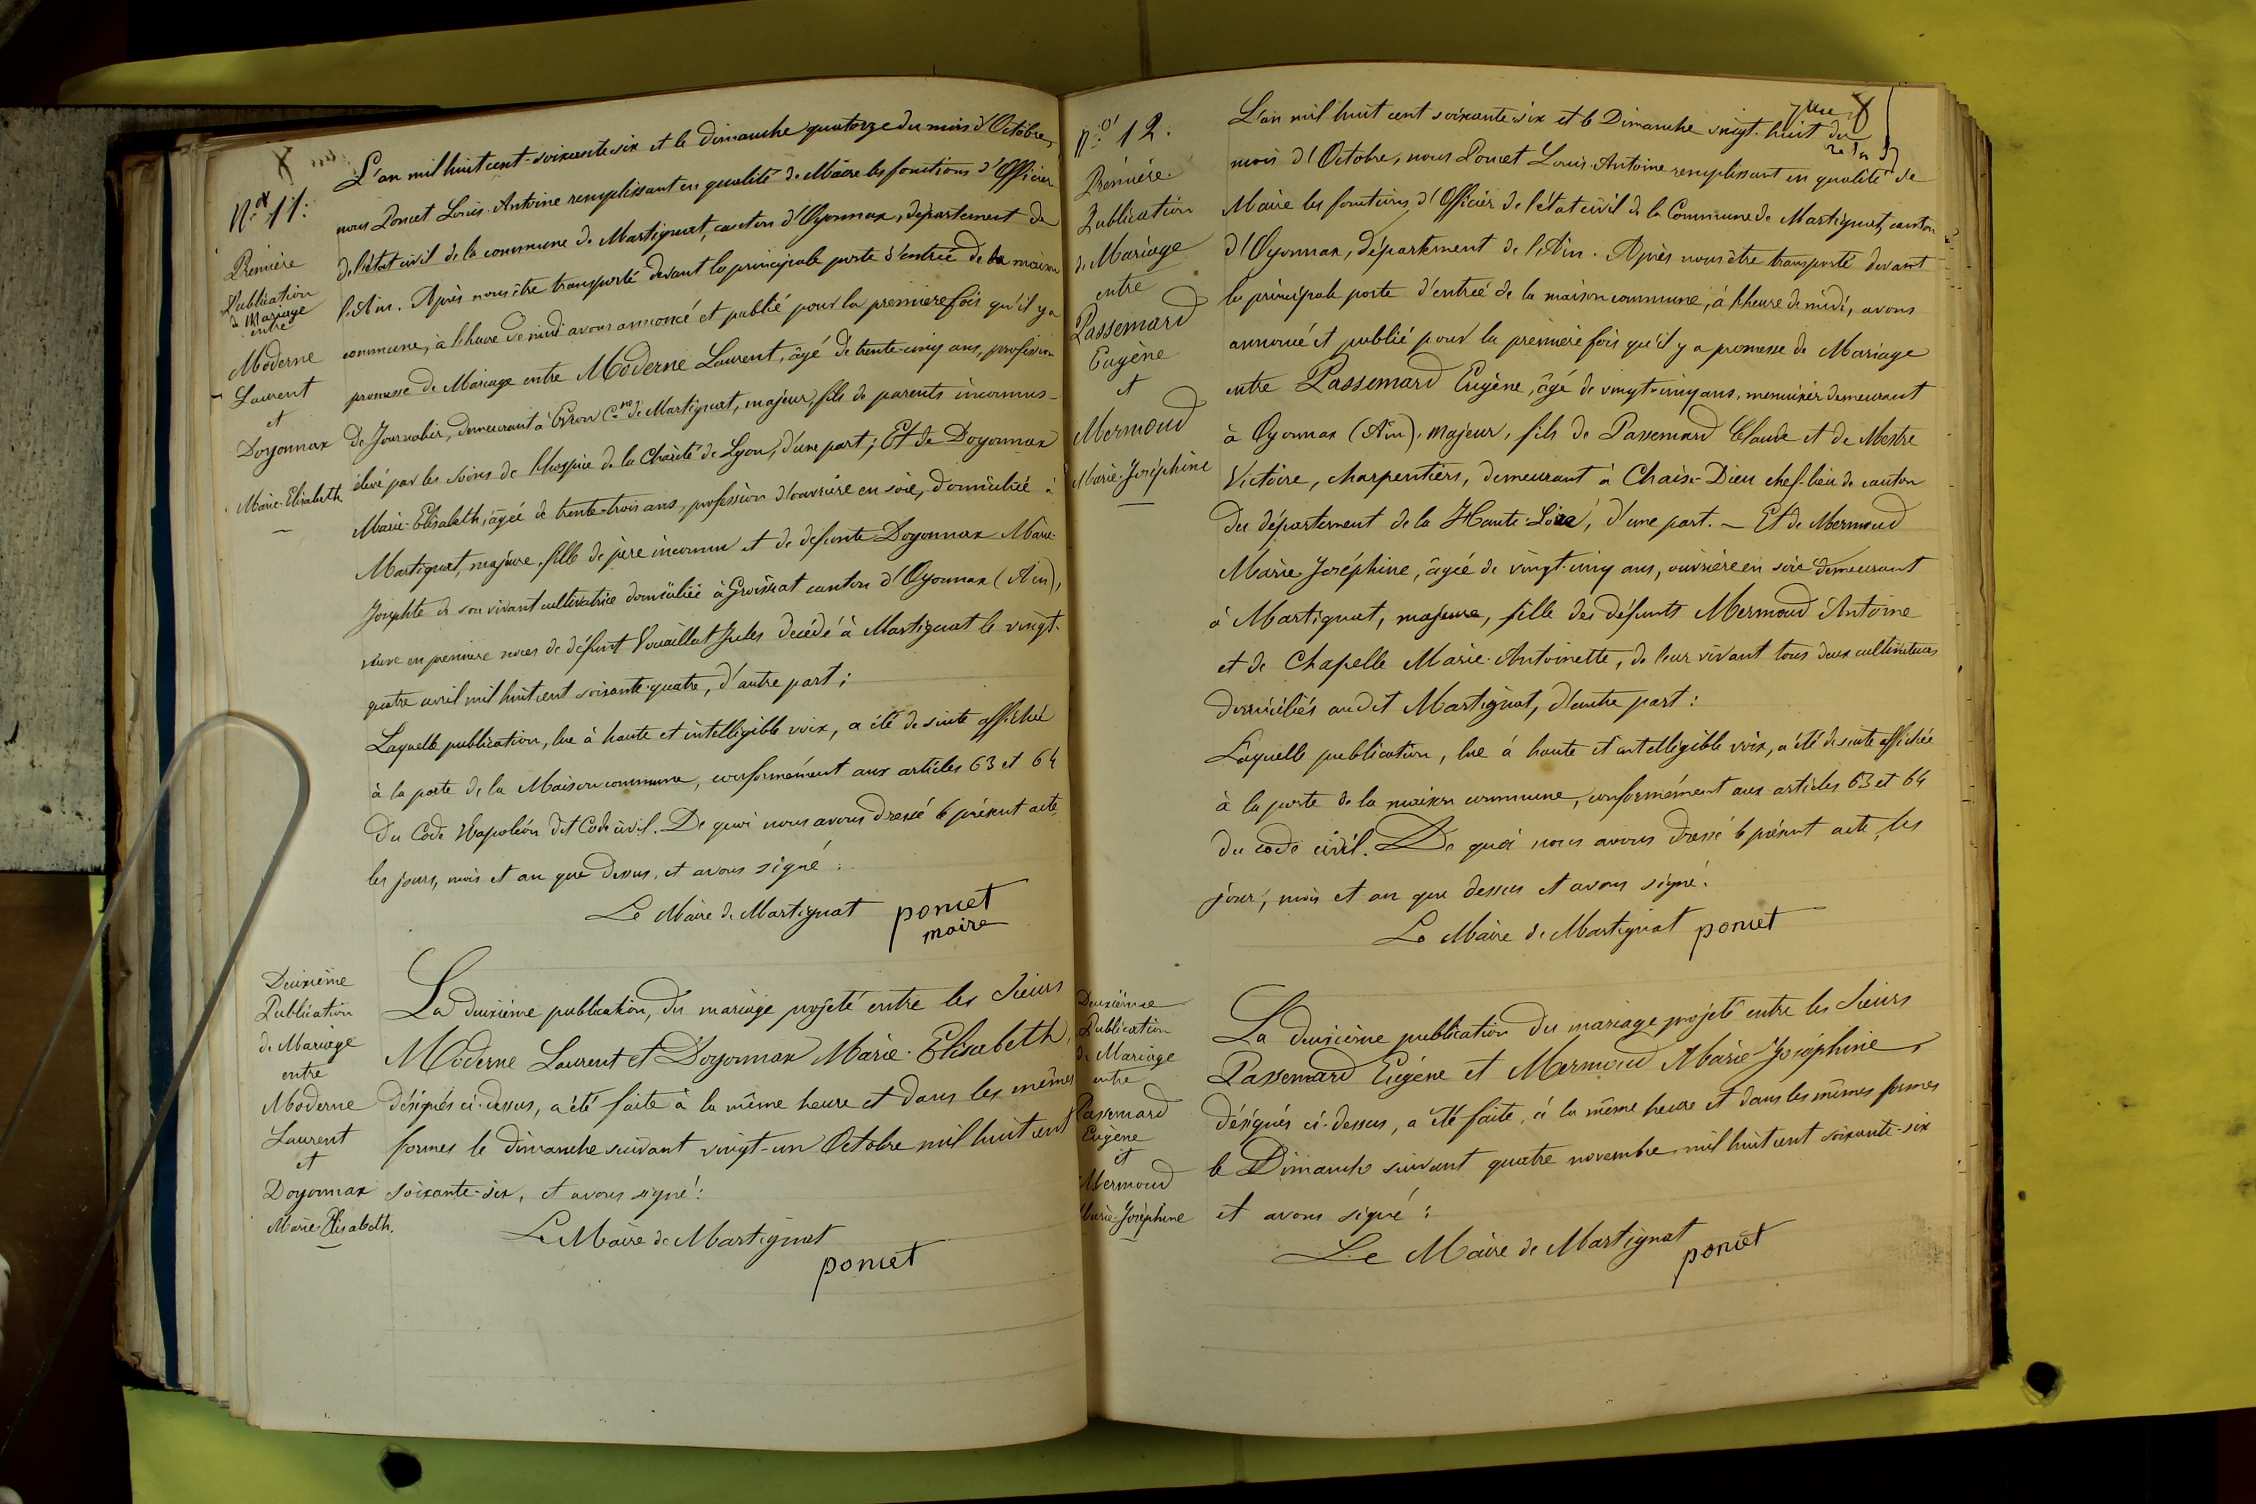 N.o 11.
Première
Publication
de Mariage
entre
Moderne
Laurent
et
Doyonnax
Marie-Elisabeth
L'an mil huit cent-soixante six et le dimanche quatorze du mois d'Octobre,
nous Poncet Louis-Antoine remplissant en qualité de Maire les fonctions d'Officier
de l'état civil de la commune de Martignat, canton d'Oyonnax, département de
l'Ain. Après nous être transporté devant la principale porte d'entrée de la maison
commune, à l'heure de midi avons annoncé et publié pour la première fois qu'il y a
promesse de Mariage entre Moderne Laurent, âgé de trente-cinq ans, profession
de Journalier, demeurant à Evron C.ne de Martignat, majeur, fils de parents inconnus-
élevé par les soins de l'hospice de la Charité de Lyon, d'une part; Et de Doyonnax
Marie-Elisabeth, âgée de trente-trois ans, profession d'ouvrière en soie, domiciliée à
Martignat, majeure, fille de père inconnu et de défunte Doyonnax Marie-
Josephte de son vivant cultivatrice domiciliée à Groissiat canton d'Oyonnax (Ain),
veuve en première noces de défunt Vouaillat Jules décédé à Martignat le vingt-
quatre avril mil huit cent soixante-quatre, d'autre part;
Laquelle publication, lue à haute et intelligible voix, a été de suite affichée
à la porte de la Maison commune, conformément aux articles 63 et 64
du Code Napoléon dit Code civil. De quoi nous avons dressé le présent acte,
les jours, mois et an que dessus, et avons signé:
Le Maire de Martignat poncet
maire
Deuxième
Publication
de Mariage
entre
Moderne
Laurent
et
Doyonnax
Marie-Elisabeth.
La deuxième publication, du mariage projeté entre les Sieurs
Moderne Laurent et Doyonnax Marie-Elisabeth,
désignés ci-dessus, a été faite à la même heure et dans les mêmes
formes le dimanche suivant vingt-un Octobre mil huit cent
soixante-six, et avons signé:
Le Maire de Martignat
poncet
N.o 12.
Première
Publication
de Mariage
entre
Passemard
Eugène
et
Mermoud
Marie-Joséphine
L'an mil huit cent soixante-six et le Dimanche vingt-huit du
mois d'Octobre, nous Poncet Louis-Antoine remplissant en qualité de
Maire les fonctions d'Officier de l'état civil de la Commune de Martignat, canton
d'Oyonnax, département de l'Ain. Après nous être transporté devant
la principale porte d'entrée de la maison commune, à l'heure de midi, avons
annoncé et publié pour la première fois qu'il y a promesse de Mariage
entre Passemard Eugène, âgé de vingt-cinq ans, menuisier demeurant
à Oyonnax (Ain), majeur, fils de Passemard Claude et de Mestre
Victoire, charpentiers, demeurant à Chaise-Dieu chef-lieu de canton
du département de la Haute-Loire, d'une part. - Et de Mermoud
Marie Joséphine, âgée de vingt-cinq ans, ouvrière en soie demeurant
à Martignat, majeure, fille des défunts Mermoud Antoine
et de Chapelle Marie-Antoinette, de leur vivant tous deux cultivateurs
domiciliés audit Martignat, d'autre part:
Laquelle publication, lue à haute et intelligible voix, a été de suite affichée
à la porte de la maison commune, conformément aux articles 63 et 64
du code civil. De quoi nous avons dressé le présent acte, les
jour, mois et an que dessus et avons signé:
Le Maire de Martignat poncet
Deuxième
Publication
de Mariage
entre
Passemard
Eugène
et
Mermoud
Marie-Joséphine
La deuxième publication du mariage projeté entre les Sieurs
Passemard Eugène et Mermoud Marie-Joséphine,
désignés ci-dessus, a été faite, à la même heure et dans les mêmes formes
le Dimanche suivant quatre novembre mil huit cent soixante-six
et avons signé:
Le Maire de Martignat
poncet